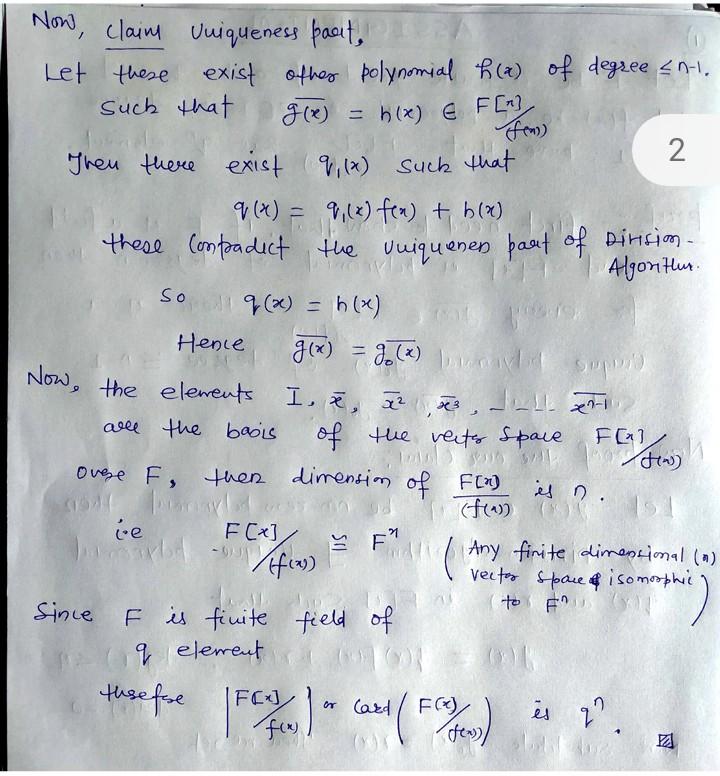 Now, Claim Uniqueness part,
Let there exist other polynomial h(x) of degree ≤ n-1.
Such that \overline{g(x)} = h(x) ∈ F[x]/(f(x))
2
Then there exist q₁(x) such that
q(x) = q₁(x) f(x) + h(x)
these Contradict the Uniqueness part of Division-
Algorithm.
So q(x) = h(x)
Hence \overline{g(x)} = \overline{g₀(x)}
Now, the elements \overline{1}, \overline{x}, \overline{x²}, \overline{x³}, - - - - \overline{xⁿ⁻¹}
are the basis of the vector Space F[x]/(f(x))
over F, then dimension of F[x]/(f(x)) is n.
i.e F[x]/(f(x)) ≅ Fⁿ (Any finite dimensional (n)
vector space isomorphic
to Fⁿ)
Since F is finite field of
q element
therefore |F[x]/f(x)| or Card(F(x)/(f(x))) is qⁿ.